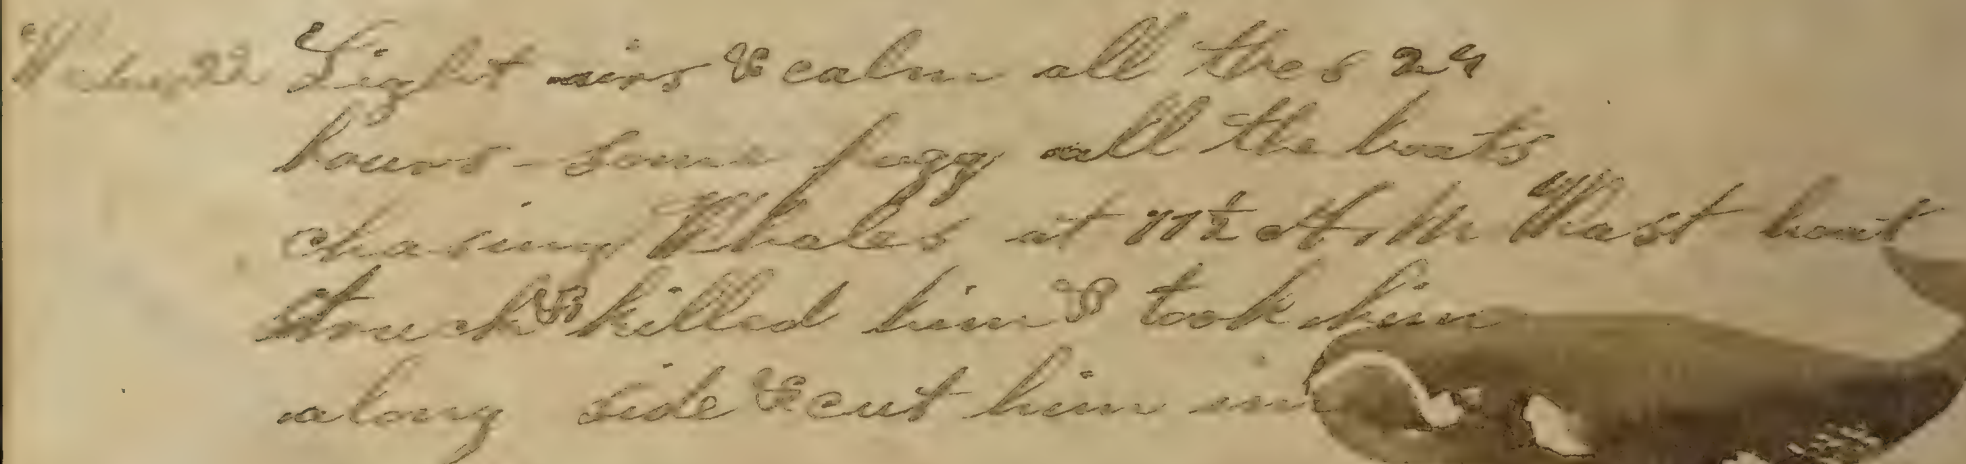 22 Light airs & calm all thes 24
hours - some fogg all the boats
chasing Whales at 11½ A, M Wast boat
struck & killed him & took him
along side & cut him in